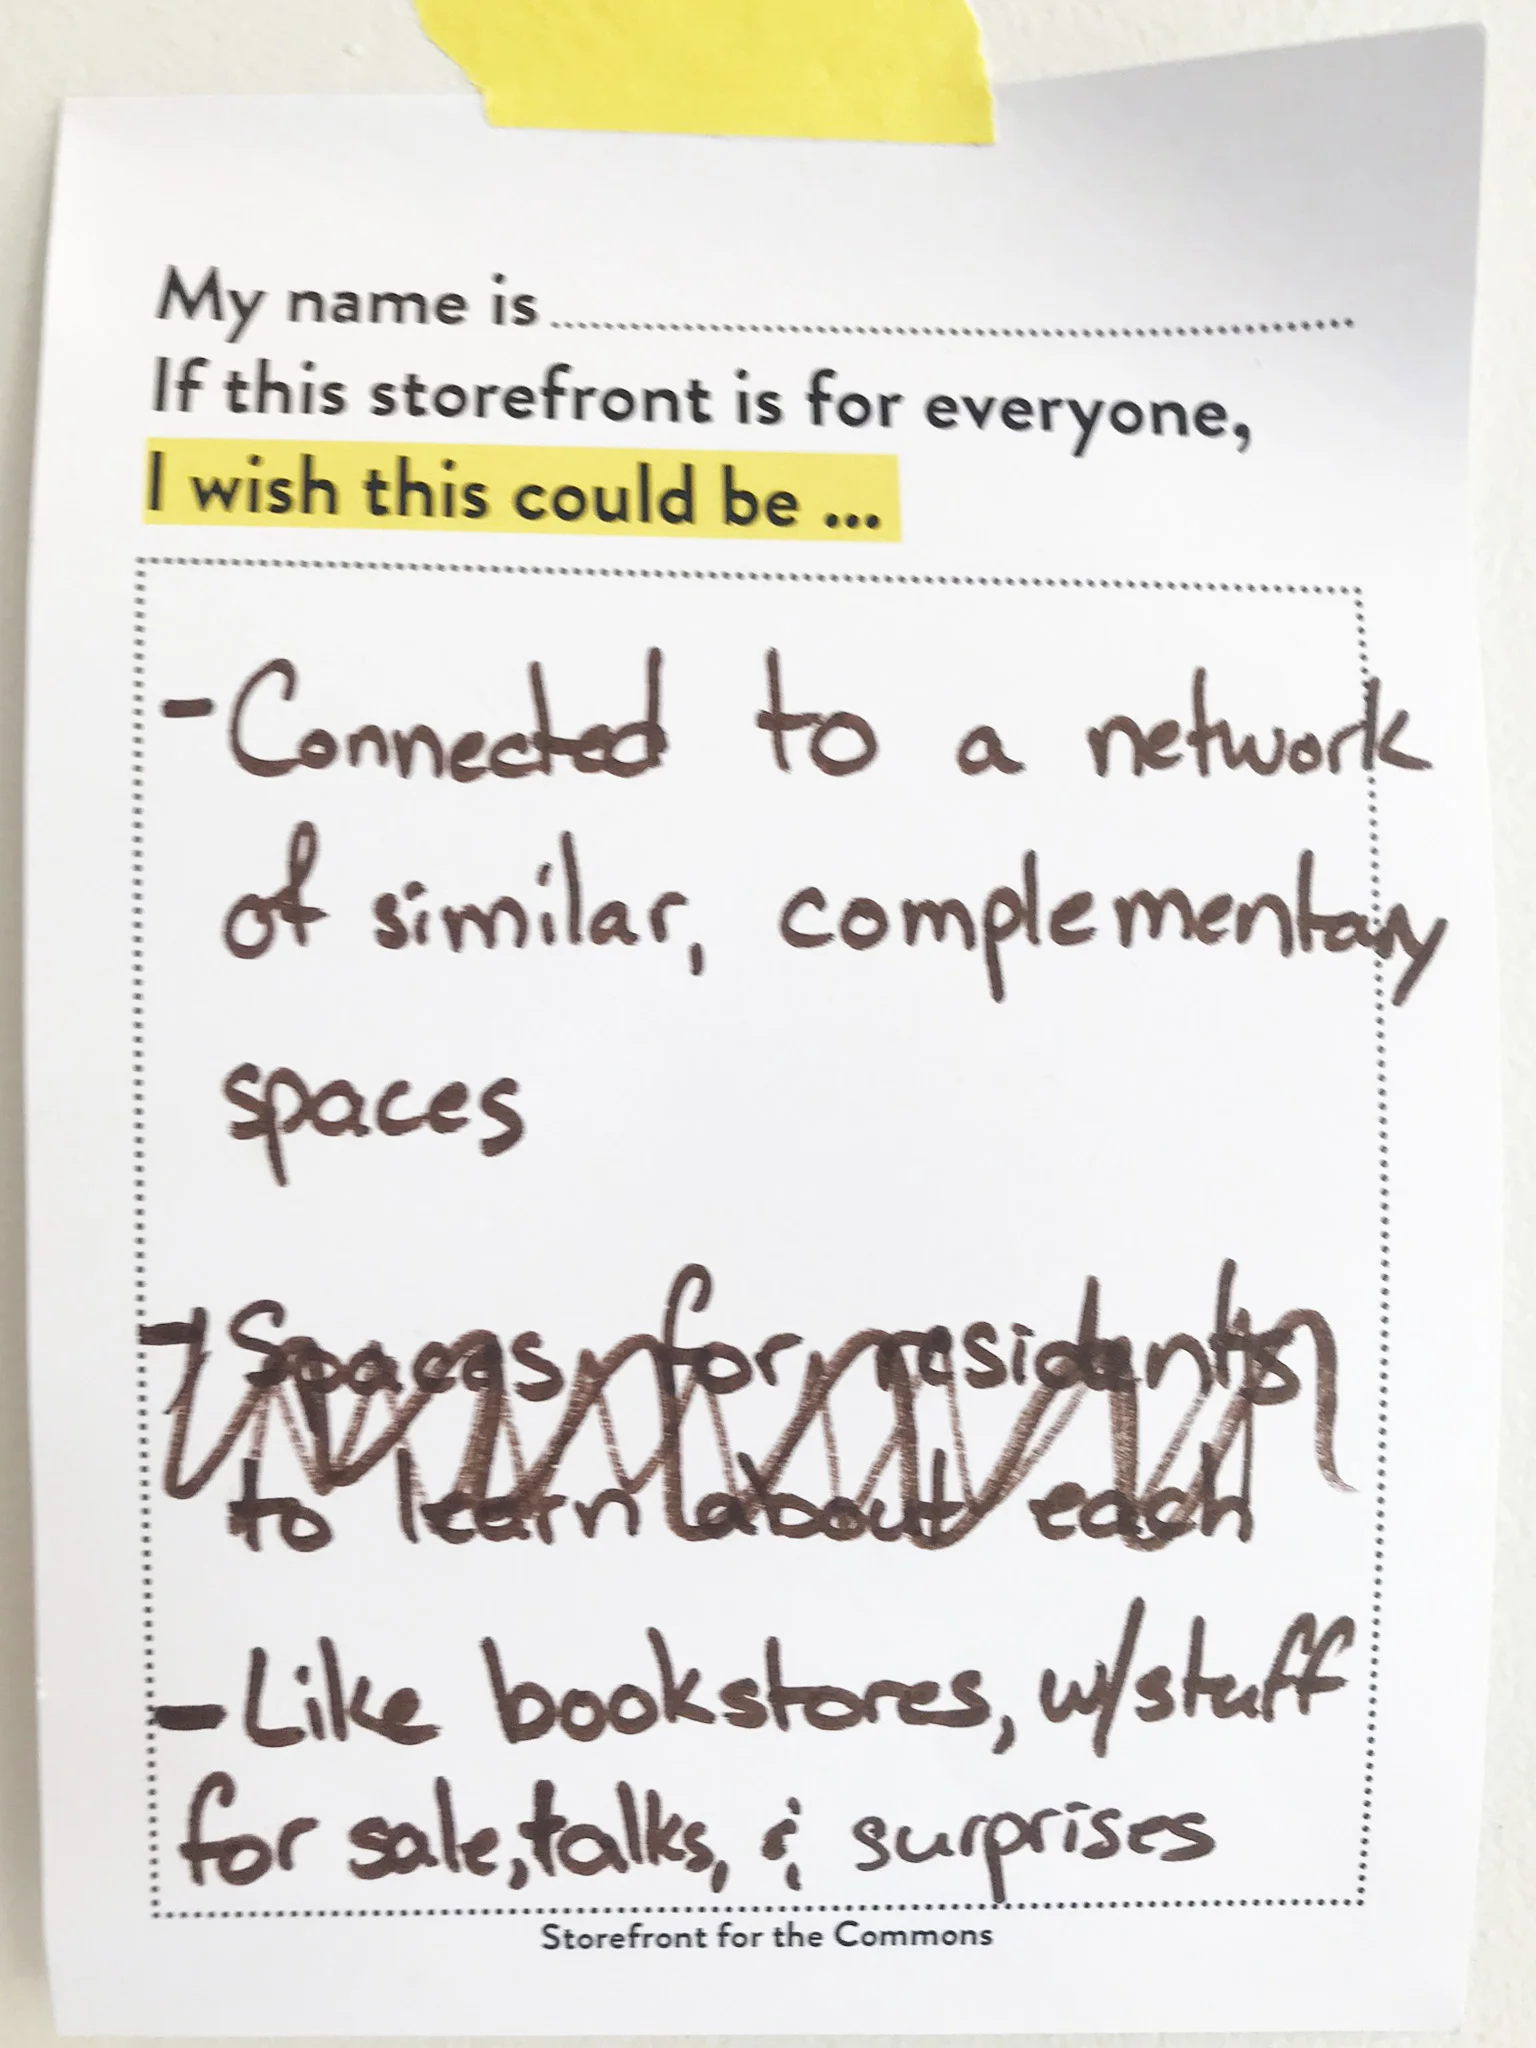 My name is
If this storefront is for everyone,
I wish this could be ...
- Connected to a network
of similar, complementary
spaces
- Spaces for residents
to learn about each
- Like bookstores, w/stuff
for sale, talks, & surprises
Storefront for the Commons